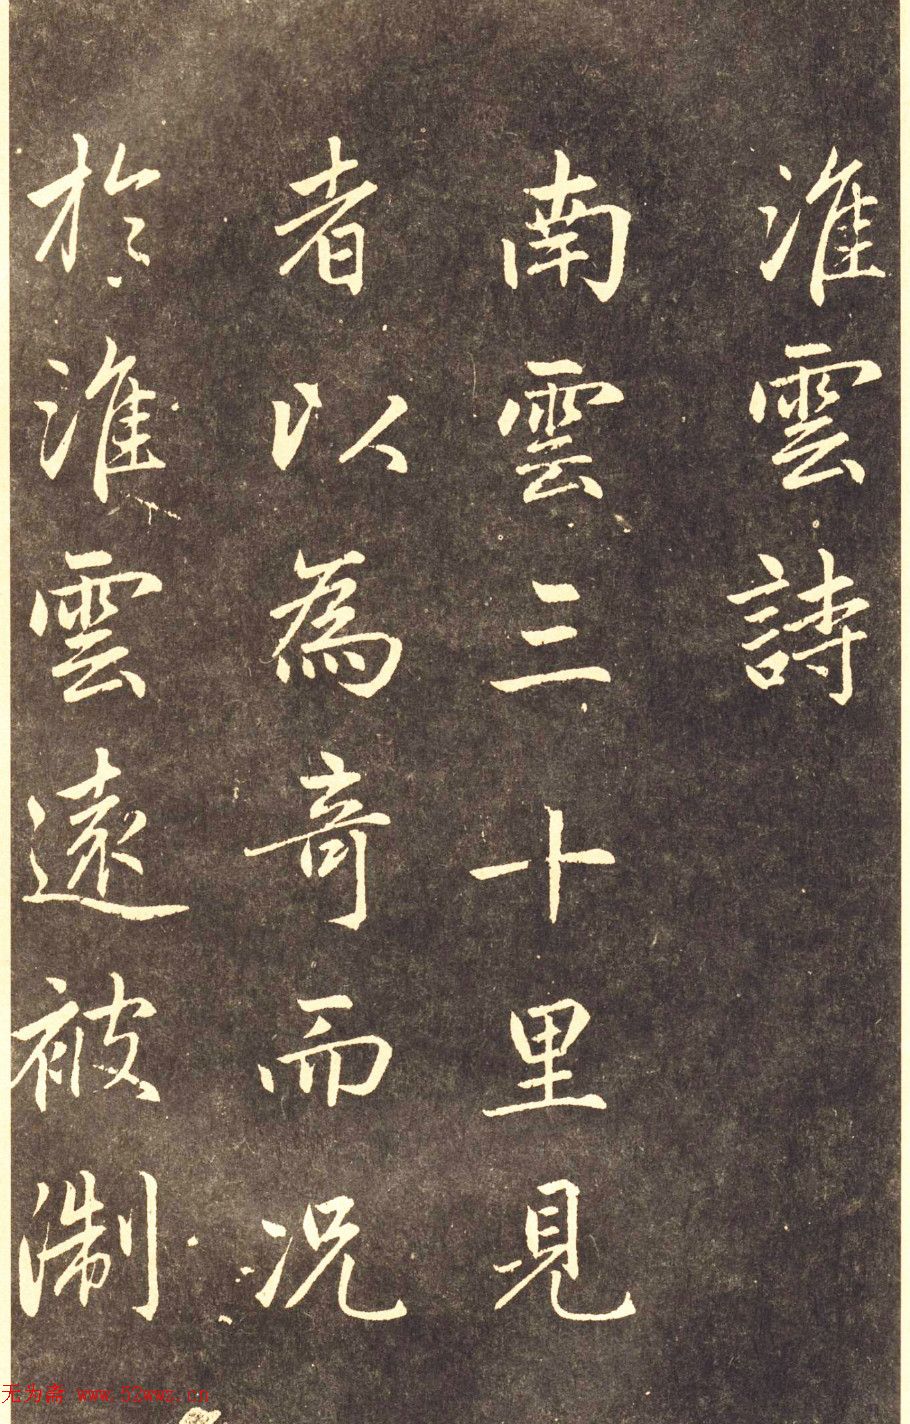 淮雲詩
南雲三十里見
者以為奇而况
於淮雲遠被淛
无为斋 www.52wwz.cn